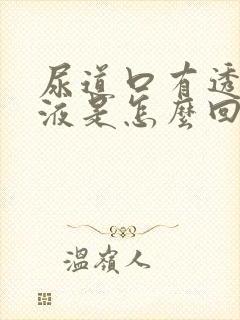 尿道口有透
液是怎麼回
溫嶺人